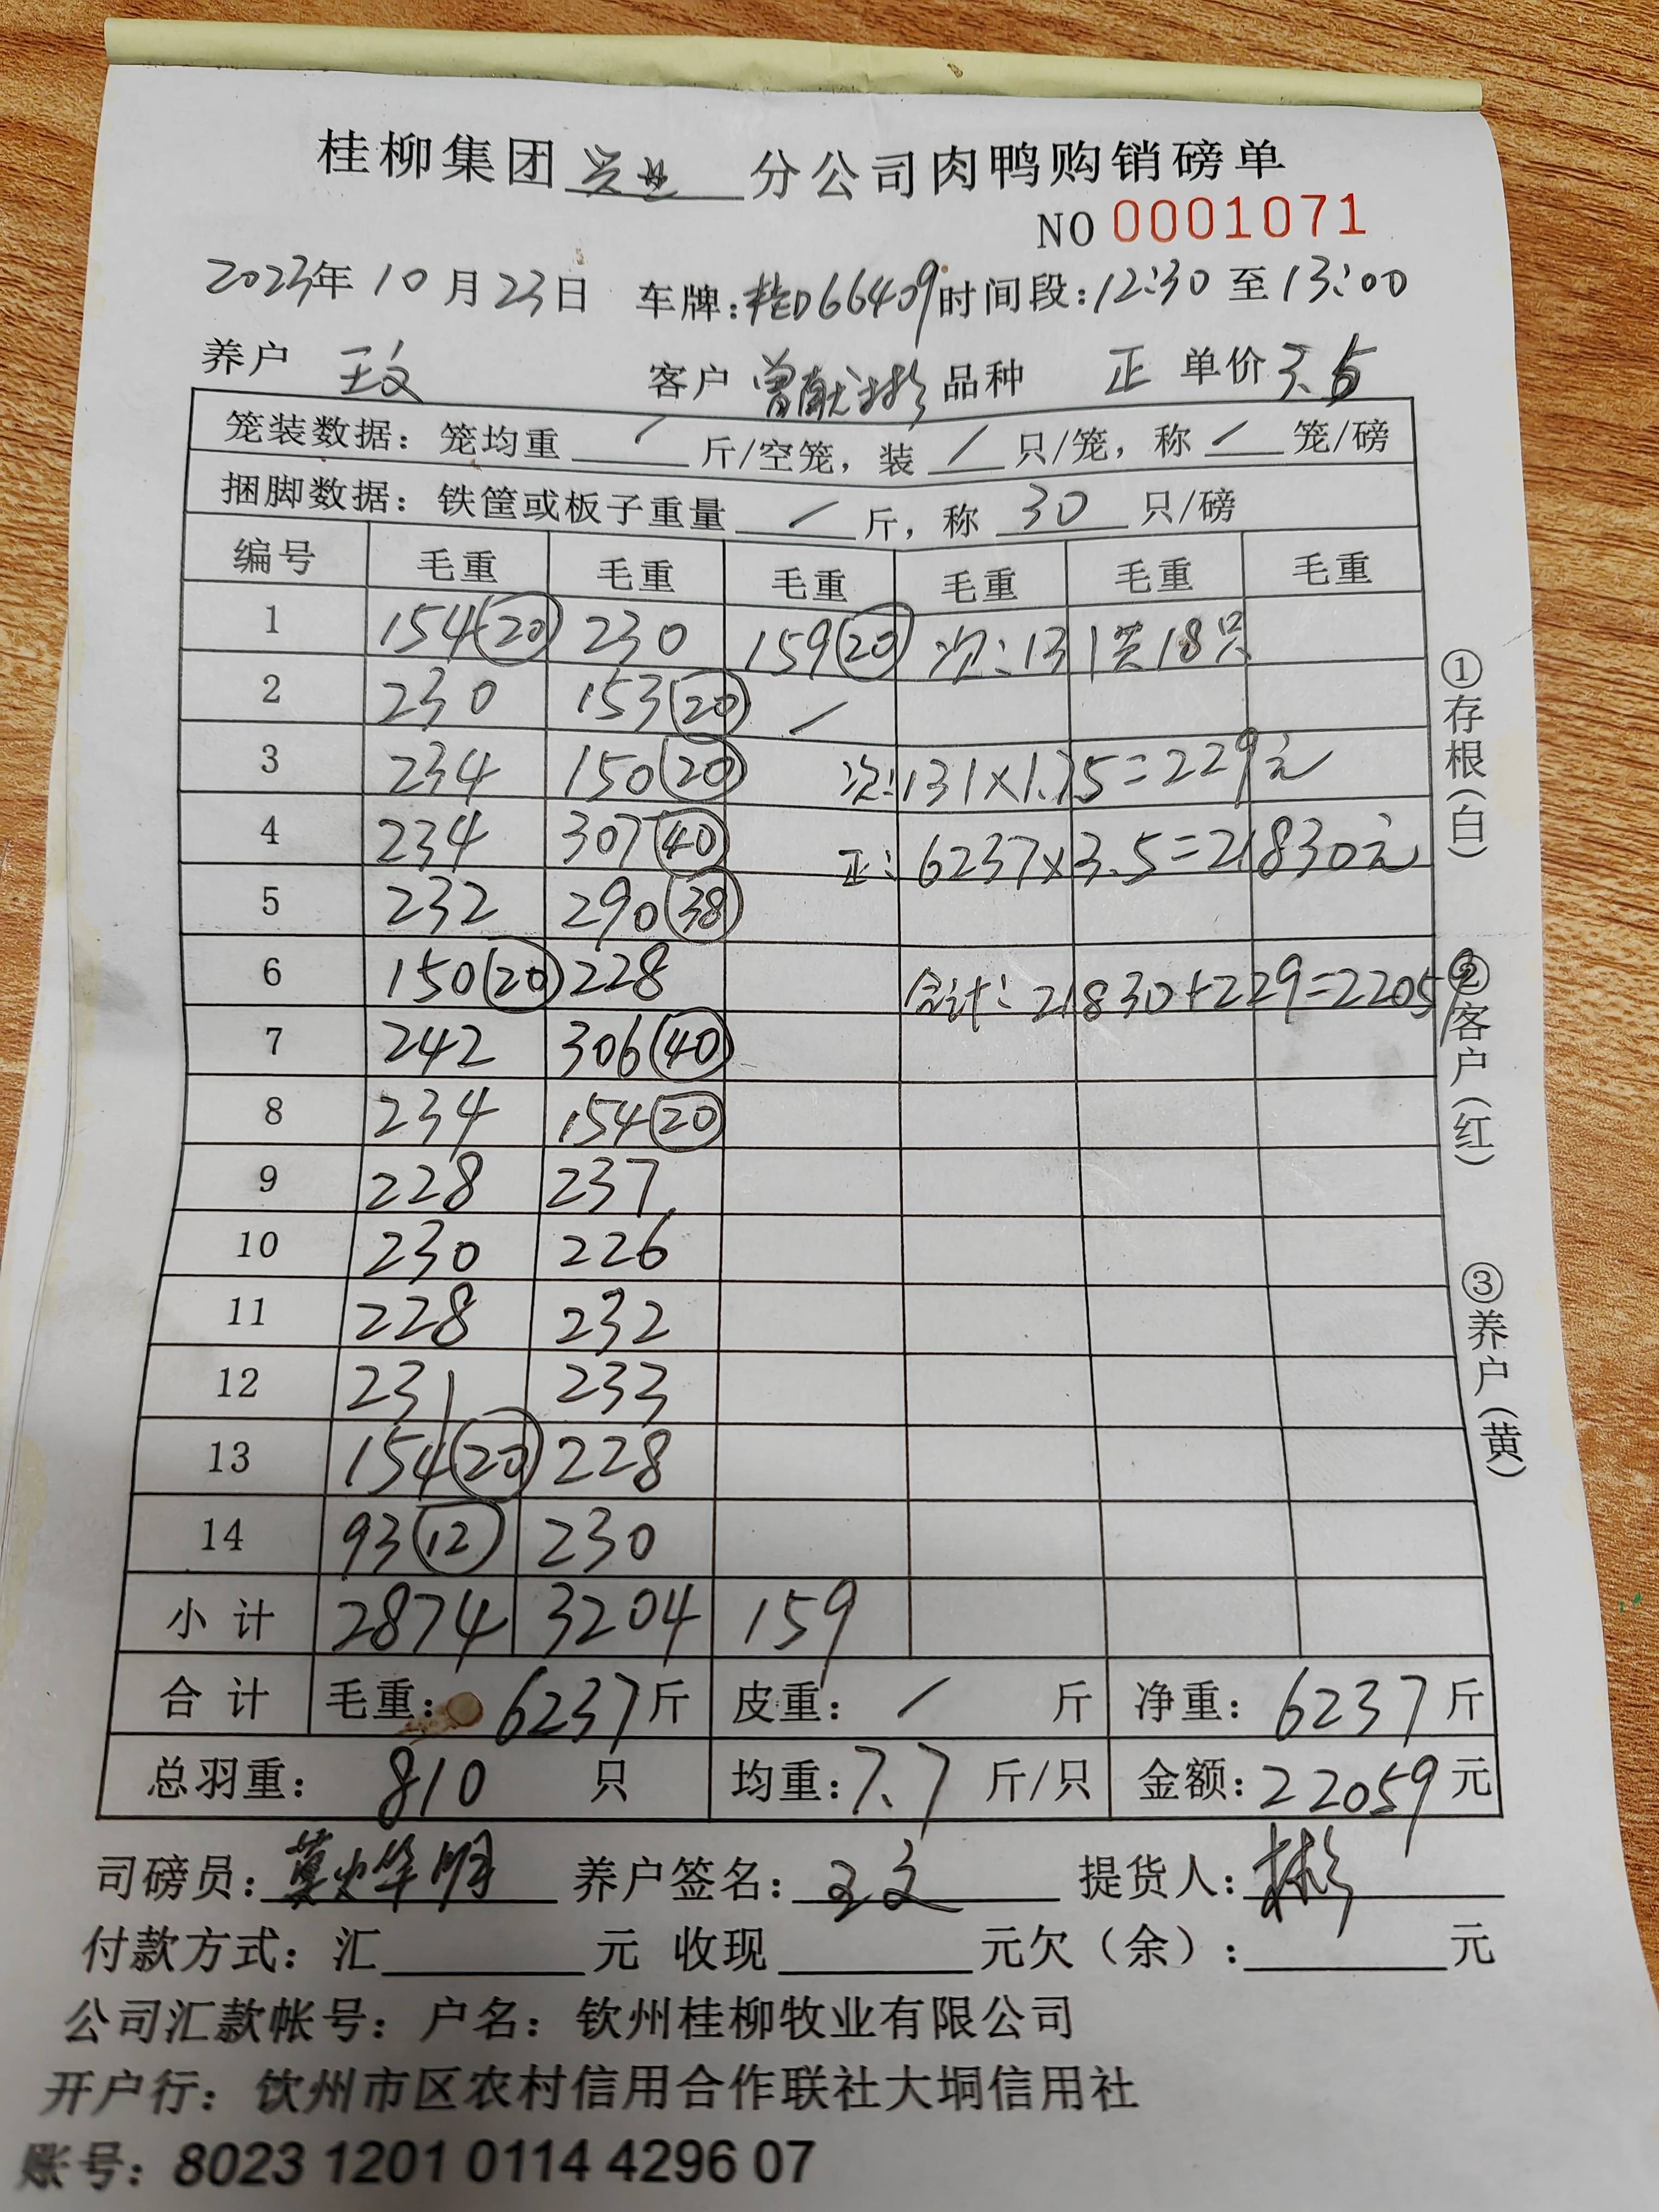 桂柳集团兴业分公司肉鸭购销磅单
NO 0001071
2023年10月23日 车牌:桂D66409 时间段:12:30至13:00
养户 王文 客户 曾献彬 品种 正 单价 3.5
笼装数据：笼均重 / 斤/空笼，装 / 只/笼，称 / 笼/磅
捆脚数据：铁筐或板子重量 / 斤，称 30 只/磅
编号 毛重 毛重 毛重 毛重 毛重 毛重
1 154(20) 230 159(20) 次:131共18只
2 230 153(20) /
3 234 150(20) 次:131×1.75=229元
4 234 307(40) 正:6237×3.5=21830元
5 232 290(38)
6 150(20) 228 合计:21830+229=22059
7 242 306(40)
8 234 154(20)
9 228 237
10 230 226
11 228 232
12 231 233
13 154(20) 228
14 93(12) 230
小计 2874 3204 159
合计 毛重: 6237斤 皮重: / 斤 净重: 6237斤
总羽重: 810 只 均重:7.7 斤/只 金额:22059元
司磅员: 养户签名: 王文 提货人: 彬
付款方式：汇 元 收现 元欠（余）： 元
公司汇款帐号：户名：钦州桂柳牧业有限公司
开户行：钦州市区农村信用合作联社大垌信用社
账号：8023 1201 0114 4296 07
①存根(白)
②客户(红)
③养户(黄)